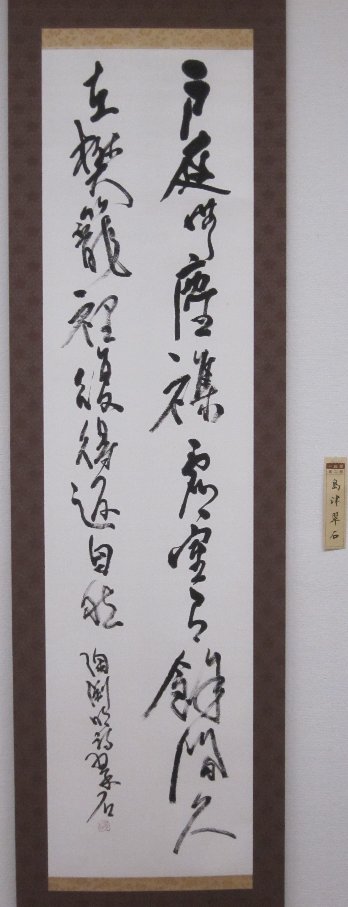 戸庭無塵雜虚室有餘閒久
在樊籠裡復得返自然
陶淵明詩翠石
島津翠石